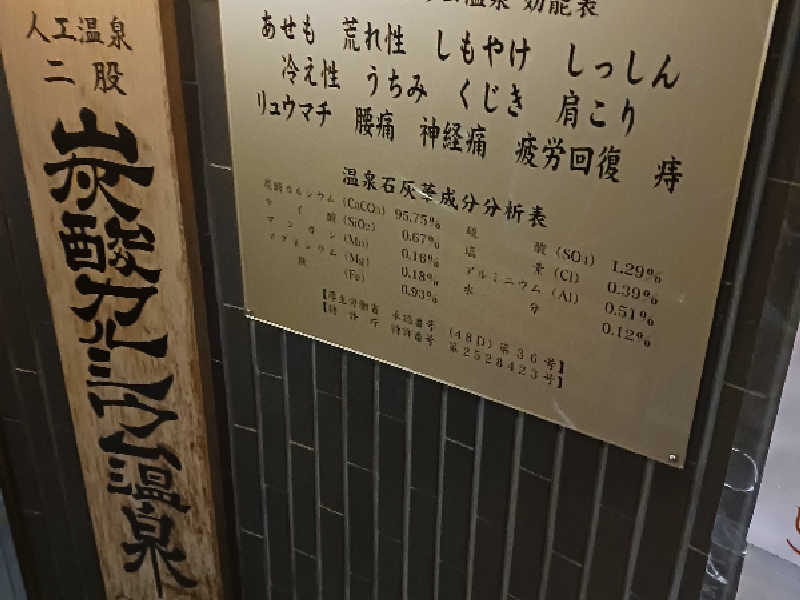 人工温泉
二股
炭酸カルシウム温泉
ム温泉 効能表
あせも 荒れ性 しもやけ しっしん
冷え性 うちみ くじき 肩こり
リュウマチ 腰痛 神経痛 疲労回復 痔
温泉石灰華成分分析表
炭酸カルシウム (CaCO₃) 95.75%
ケイ酸 (SiO₂) 0.67%
マンガン (Mn) 0.16%
マグネシウム (Mg) 0.18%
鉄 (Fe) 0.93%
硫酸 (SO₄) 1.29%
塩素 (Cl) 0.39%
アルミニウム (Al) 0.51%
水分 0.12%
【厚生労働省 承認番号 (48D)第36号】
【特許庁 特許番号 第2528423号】